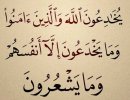 يُخَٰدِعُونَ ٱللَّهَ وَٱلَّذِينَ ءَامَنُوا۟
وَمَا يَخْدَعُونَ إِلَّآ أَنفُسَهُمْ
وَمَا يَشْعُرُونَ